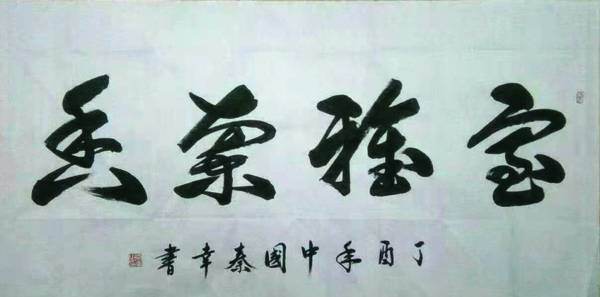 室雅蘭香
丁酉年中國秦幸書